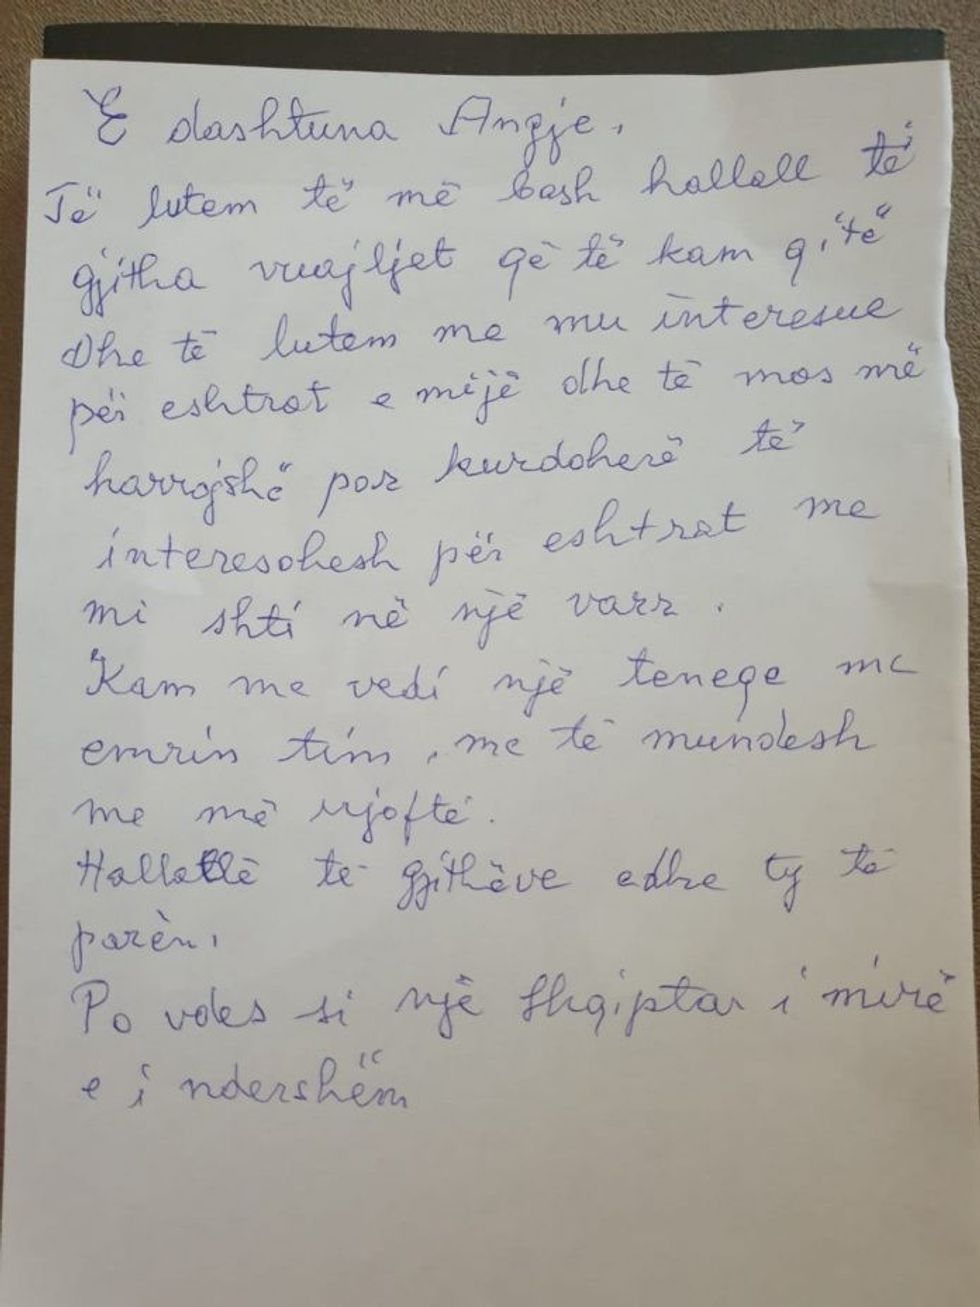 E dashtuna Angje,
Të lutem të më bash hallall të
gjitha vuajtjet që të kam q,të
Dhe të lutem me mu interesue
për eshtrat e mijë dhe të mos më
harrojshë por kurdoherë të
interesohesh për eshtrat me
mi shti në një varr.
Kam me vedi një teneqe me
emrin tim, me të mundesh
me më njoftë.
Hallallë të gjithëve edhe ty të
parën,
Po vdes si një Shqiptar i mirë
e i ndershëm